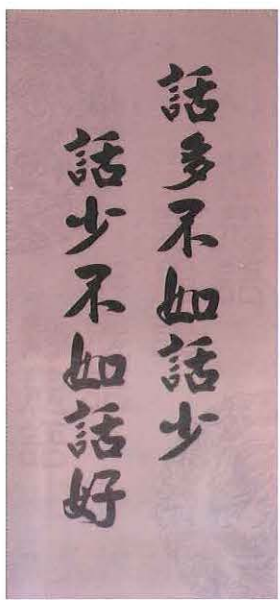 話多不如話少
話少不如話好